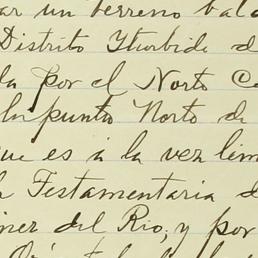 ar un terreno bal
Distrito Yturbide d
la por el Norte C
la punta Norte de
que es á la vez lim
Testamentaria d
ner del Rio; y por